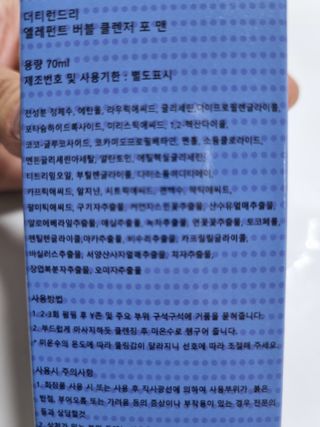 더티런드리
엘레펀트 버블 클렌저 포 맨
용량 70ml
제조번호 및 사용기한 : 별도표시
전성분 정제수, 에탄올, 라우릭애씨드, 글리세린, 다이프로필렌글라이콜,
포타슘하이드록사이드, 미리스틱애씨드, 1,2-헥산다이올,
코코-글루코사이드, 코카미도프로필베타인, 멘톨, 소듐클로라이드,
멘톤글리세린아세탈, 알란토인, 에틸헥실글리세린,
티트리잎오일, 부틸렌글라이콜, 다이소듐이디티에이,
카프릭애씨드, 알지닌, 시트릭애씨드, 판테놀, 락틱애씨드,
팔미틱애씨드, 구기자추출물, 산수유열매추출물,
알로에베라잎추출물, 매실추출물, 녹차추출물, 연꽃꽃추출물, 토코페롤,
펜틸렌글라이콜, 마카추출물, 비수리추출물, 카프릴릴글라이콜,
바실러스추출물, 서양산사자열매추출물, 치자추출물,
장엽복분자추출물, 오미자추출물
사용방법
1. 2-3회 펌핑 후 Y존 및 주요 부위 구석구석에 거품을 묻혀줍니다.
2. 부드럽게 마사지하듯 클렌징 후 미온수로 헹구어 줍니다.
* 미온수의 온도에 따라 쿨링감이 달라지니 선호에 따라 조절해 주세요.
사용시 주의사항
1. 화장품 사용 시 또는 사용 후 직사광선에 의하여 사용부위가 붉은
반점, 부어오름 또는 가려움 등의 증상이나 부작용이 있는 경우 전문의
등과 상담할것